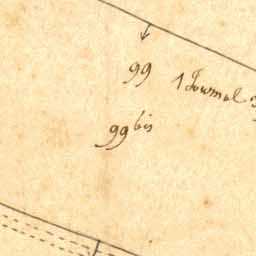 99 1 Journal
99 bis